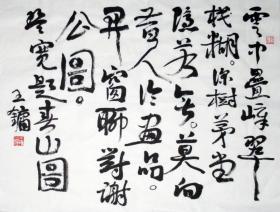 雲中疊峰翠
模糊。深樹茅堂
隱若無。莫向
昔人畫品。
開窗聊對謝
公圖。
寬題春山圖
王鏞